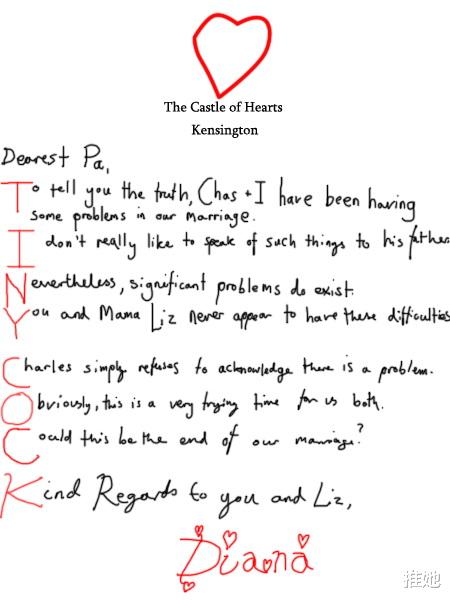 The Castle of Hearts
Kensington
Dearest Pa,
To tell you the truth, Chas + I have been having
some problems in our marriage.
I don't really like to speak of such things to his father.
Nevertheless, significant problems do exist.
You and Mama Liz never appear to have these difficulties
Charles simply refuses to acknowledge there is a problem.
Obviously, this is a very trying time for us both.
Could this be the end of our marriage?
Kind Regards to you and Liz,
Diana
推她